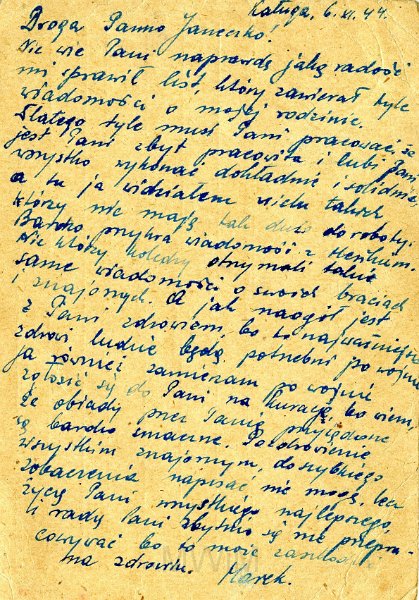 Kaługa, 6.XI.44.
Droga Panno Janeczko!
Nie wie Pani naprawdę jaką radość
mi sprawił list, który zawierał tyle
wiadomości o mojej rodzinie.
Dlatego tyle musi Pani pracować, że
jest Pani zbyt pracowita i lubi Pani
wszystko wykonać dokładnie i solidnie,
a tu ja widziałem wielu takich
którzy nie mają tak dużo do roboty.
Bardzo przykra wiadomość z Heńkiem.
Nie którzy koledzy otrzymali takie
same wiadomości o swoich braciach
i znajomych. A jak naogół jest
z Pani zdrowiem, bo to najważniejsze
zdrowi ludzie będą potrzebni po wojnie
ja również zamierzam po wojnie
zgłosić się do Pani na kurację, bo wiem,
że obiady przez Panią przyrządzone
są bardzo smaczne. Pozdrowienie
wszystkim znajomym, do szybkiego
zobaczenia napisać nie mogę, lecz
życzę Pani wszystkiego najlepszego
i radzę Pani zbytnio się nie przepra-
cowywać bo to może zaszkodzić
na zdrowiu. Marek.